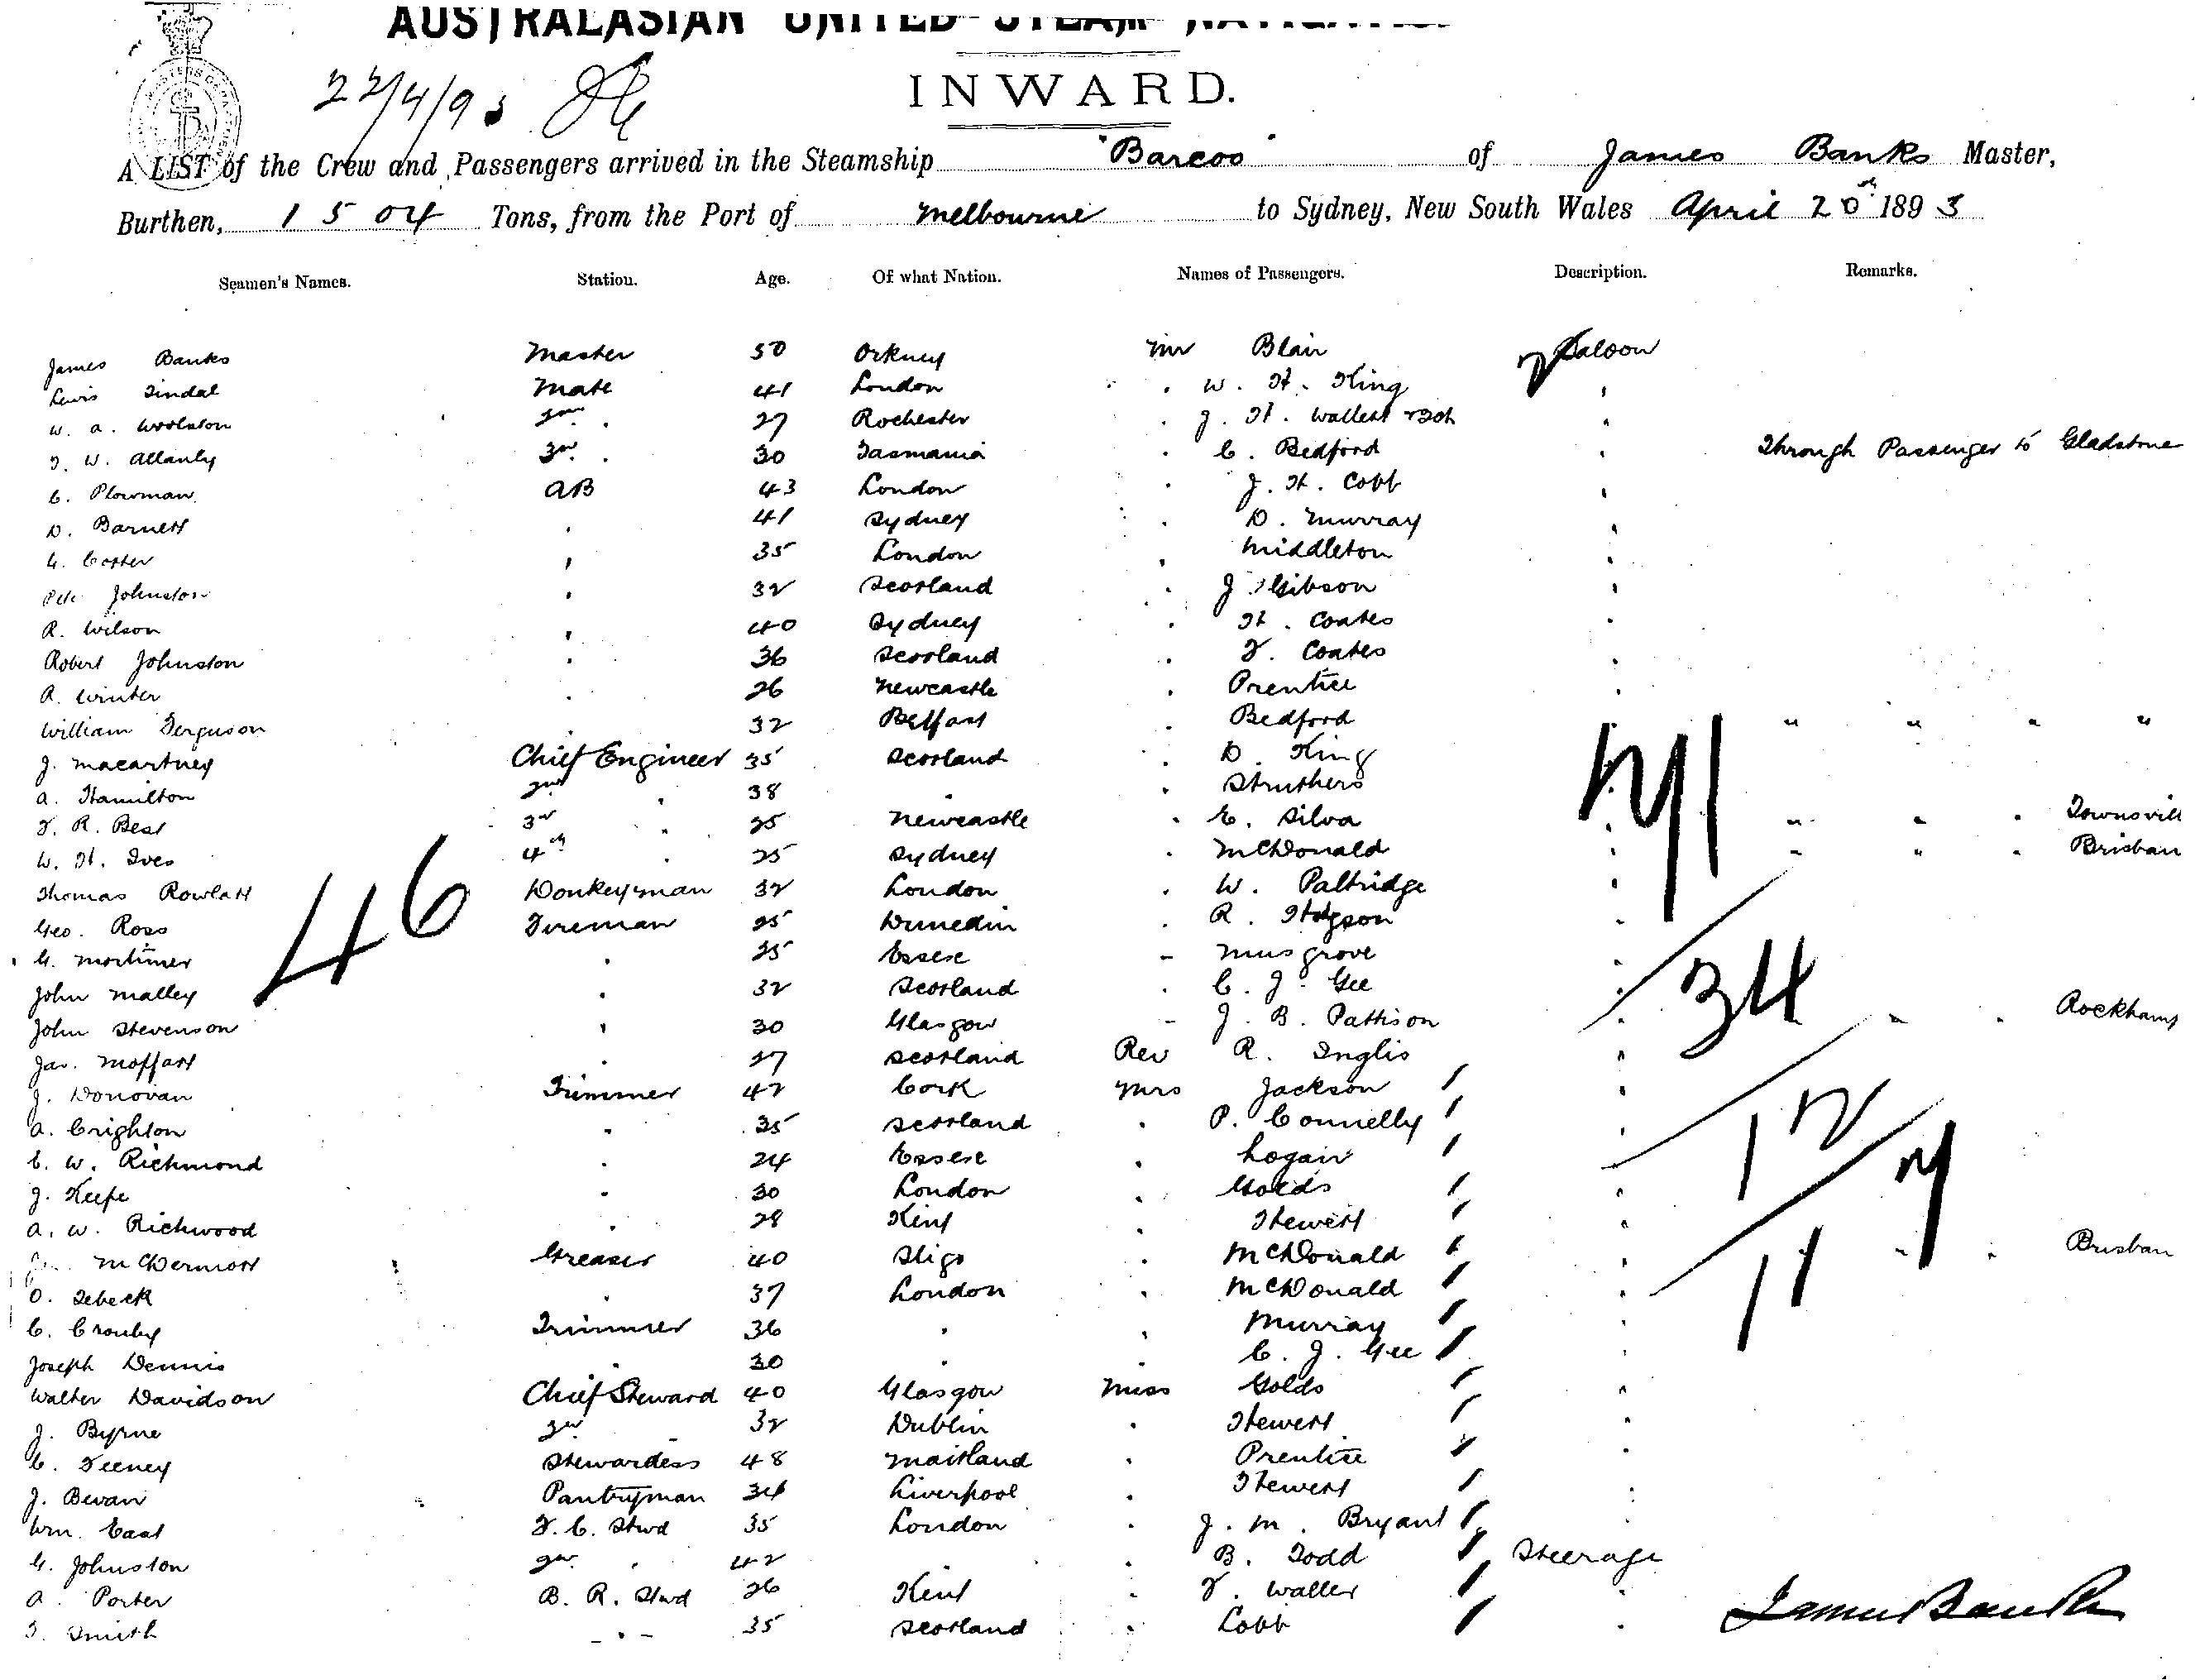 AUSTRALASIAN UNITED STEAM
22/4/93
INWARD.
A LIST of the Crew and Passengers arrived in the Steamship "Barcoo" of James Banks Master,
Burthen, 1504 Tons, from the Port of Melbourne to Sydney, New South Wales April 20th 1893
Seamen's Names. Station. Age. Of what Nation. Names of Passengers. Description. Remarks.
James Banks Master 50 Orkney Mr Blair Saloon
Lewis Tindal Mate 41 London " W. H. King "
W. A. Woolston 2nd " 27 Rochester " J. H. Wallest "
T. W. Allanby 3rd " 30 Tasmania " C. Bedford " Through Passenger to Gladstone
C. Plowman AB 43 London " J. H. Cobb "
D. Barnett " 41 Sydney " D. Murray "
G. Coster " 35 London " Middleton "
Pete Johnston " 32 Scotland " J. Gibson "
R. Wilson " 40 Sydney " H. Coates "
Robert Johnston " 36 Scotland " F. Coates "
R. Winter " 26 Newcastle " Prentice "
William Ferguson " 32 Belfast " Bedford " " " " "
J. Macartney Chief Engineer 35 Scotland " D. King "
A. Hamilton 2nd " 38 " " Struthers "
F. R. Best 3rd " 25 Newcastle " E. Silva " " " " Townsvill
W. H. Ives 4th " 25 Sydney " McDonald " " " " Brisban
Thomas Rowlatt Donkeyman 32 London " W. Paltridge "
Geo. Ross Fireman 25 Dunedin " R. Hodgson "
G. Mortimer " 25 Essex " Musgrove "
John Malley " 32 Scotland " C. J. Gee "
John Stevenson " 30 Glasgow " J. B. Pattison " " " " Rockhamp
Jas. Moffatt " 27 Scotland Rev R. Inglis "
J. Donovan Trimmer 42 Cork Mrs Jackson "
A. Crighton " 35 Scotland " P. Connelly "
E. W. Richmond " 24 Essex " Logan "
J. Keefe " 30 London " Golds "
A. W. Richwood " 28 Kent " Stewert "
McDermott Greaser 40 Sligo " McDonald " " " Brisban
O. Zebeck " 37 London " McDonald "
C. Crouley Trimmer 36 " " Murray "
Joseph Dennis " 30 " " C. J. Gee "
Walter Davidson Chief Steward 40 Glasgow Miss Golds "
J. Byrne 2nd " 32 Dublin " Stewert "
C. Feeney Stewardess 48 Maitland " Prentice "
J. Bevan Pantryman 34 Liverpool " Stewert "
Wm. East F. C. Stwd 35 London " J. M. Bryant "
G. Johnston 2nd " 42 " " B. Todd Steerage
A. Porter B. R. Stwd 26 Kent " F. Waller "
T. Smith " 35 Scotland " Cobb "
46
71
34
12
7
11
James Banks